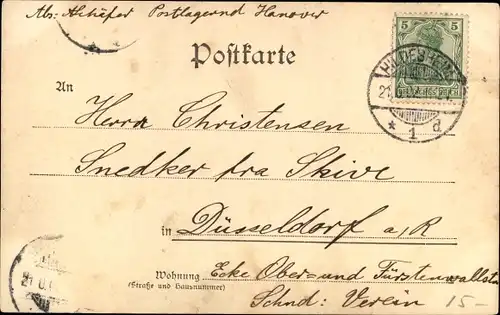 Abs: A. Schäfer Postlagernd Hanover
Postkarte
5 5
HILDESHEIM
21.6.02
* 1 d
An
Herrn Christensen
Snedker fra Skive
in Düsseldorf a/R
Wohnung Ecke Ober- und Fürstenwallstr
(Straße und Hausnummer)
Schnd: Verein 15-
21.6.